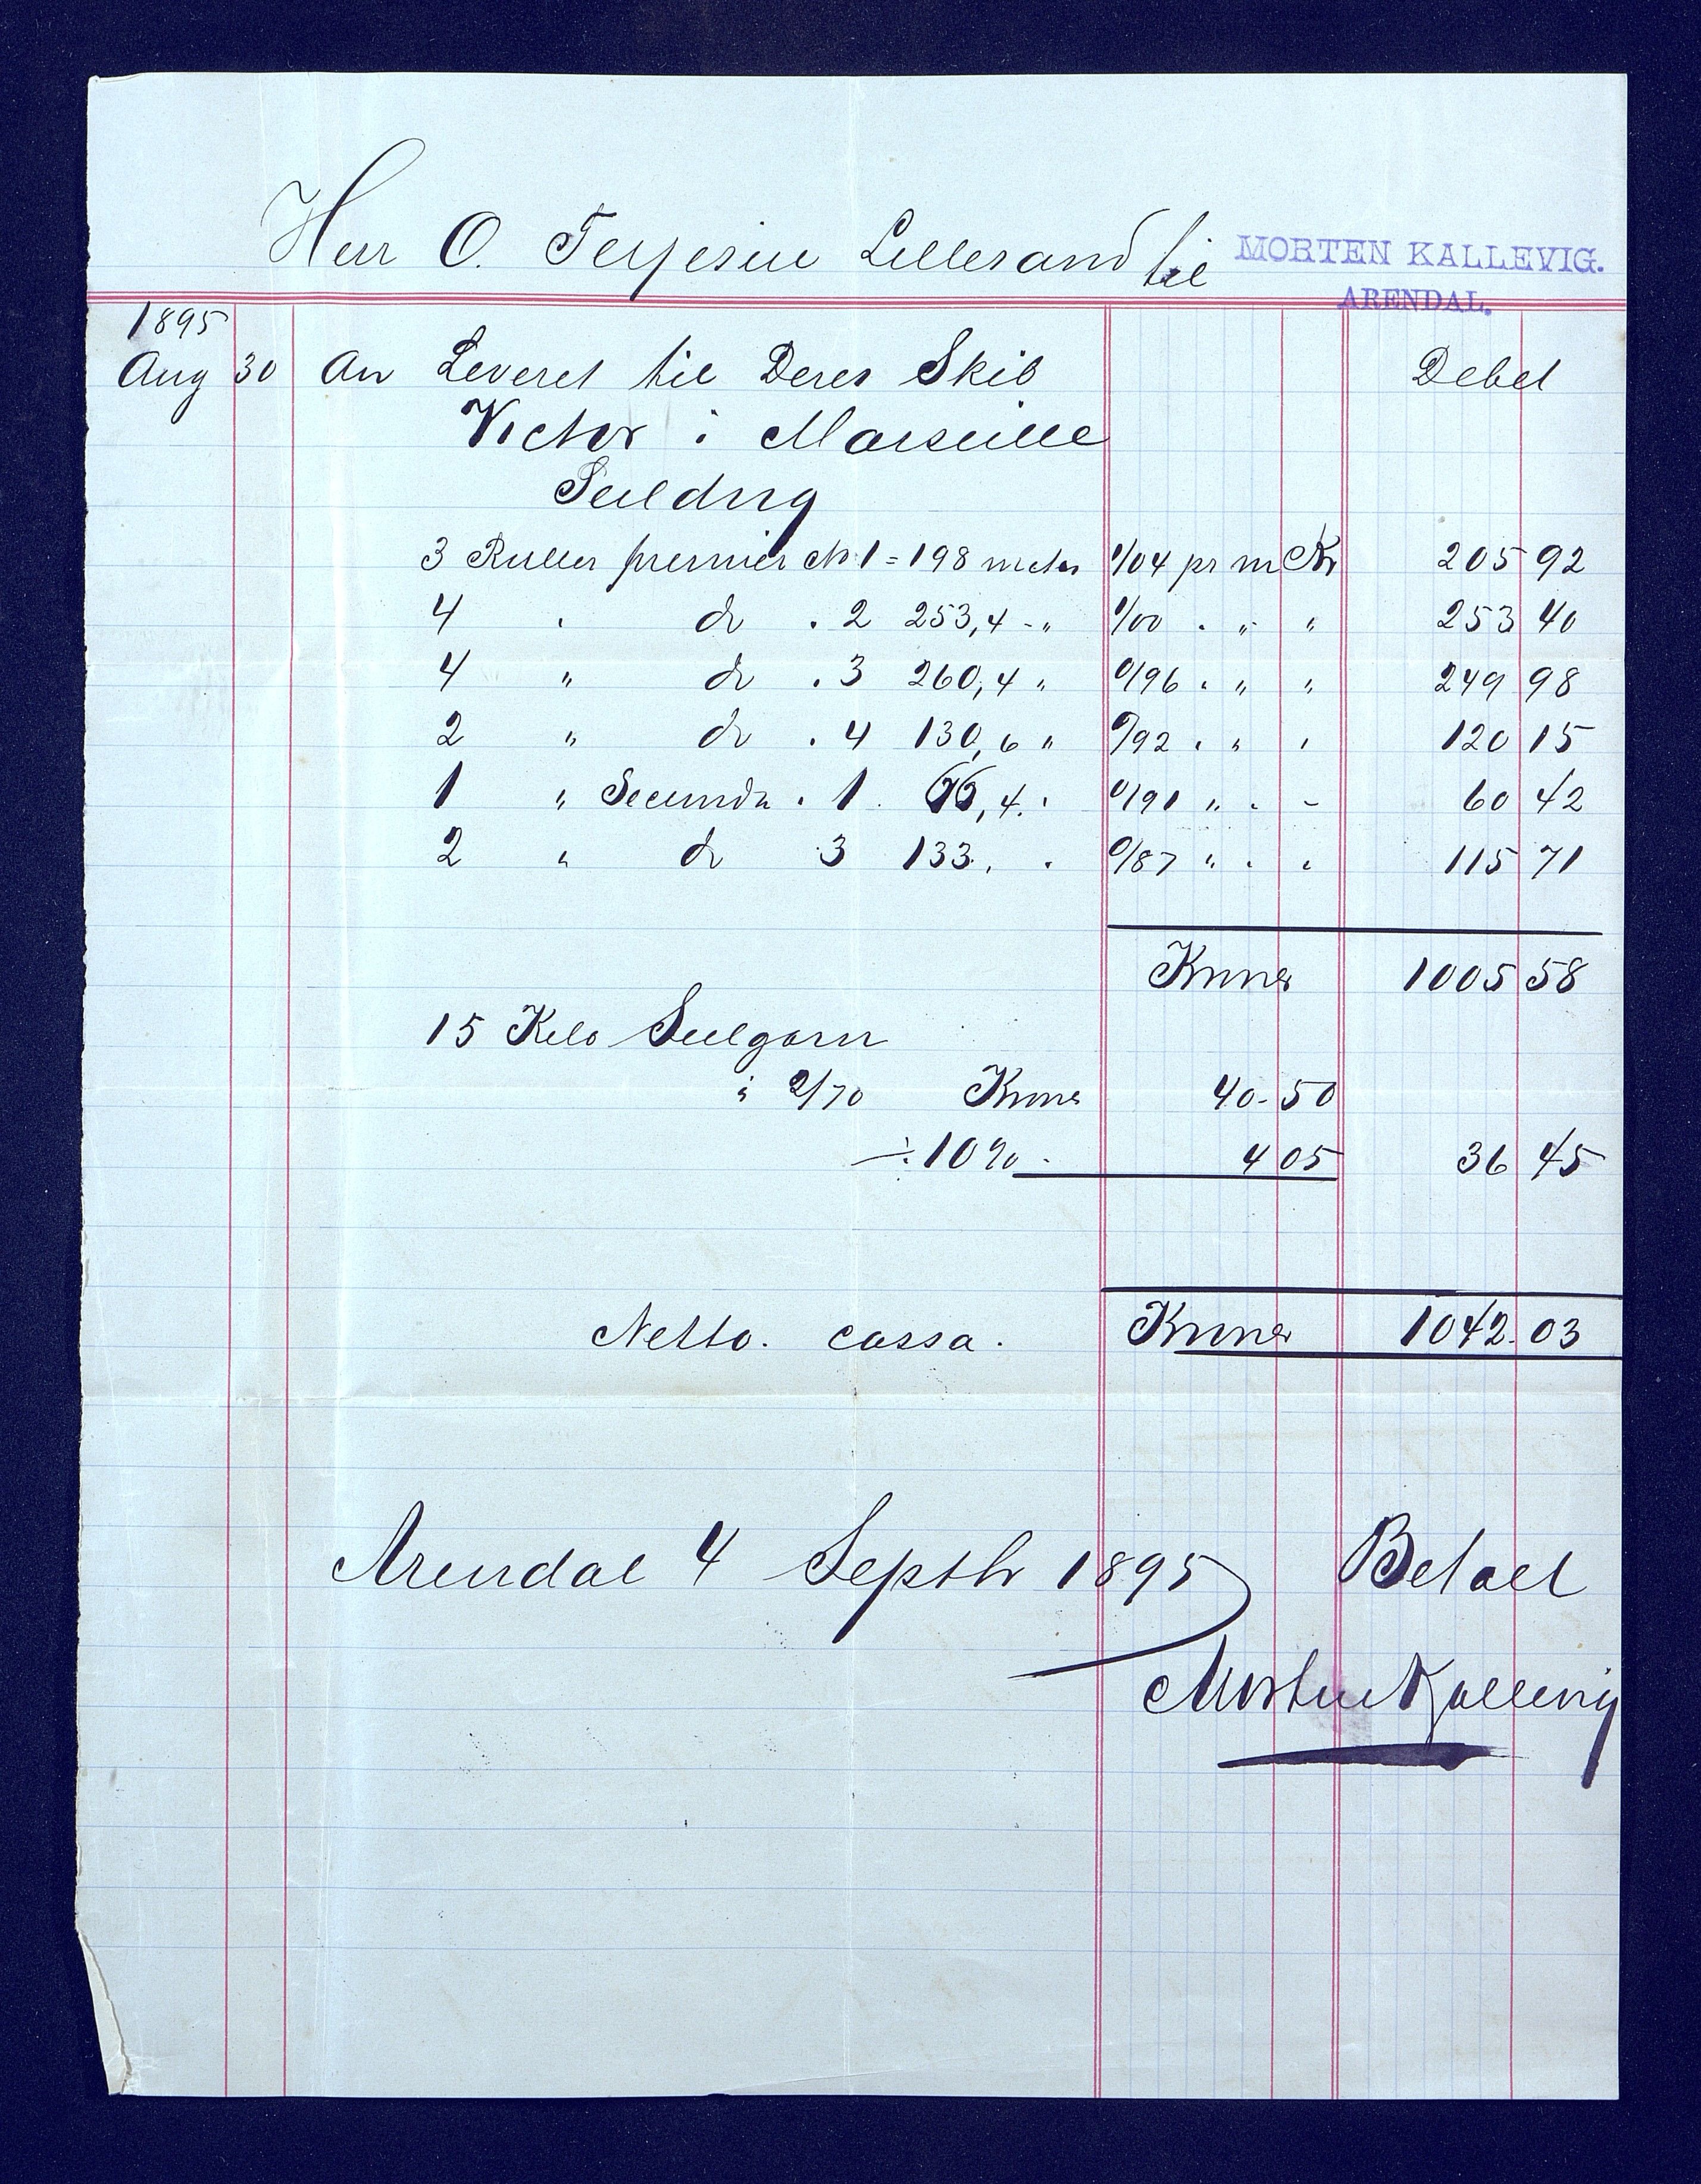 Herr O. Terjesen Lillesand til MORTEN KALLEVIG.
ARENDAL.
1895
Aug 30 An Leveret til Deres Skib Debet
Victor i Marseille
Seildug
3 Ruller premier No 1 = 198 meter 1/04 pr m Kr 205 92
4 " do . 2 253,4 - " 1/00 . " " 253 40
4 " do . 3 260,4 " 0/96 . " " 249 98
2 " do . 4 130,6 " 0/92 . " " 120 15
1 " Secunda . 1 66,4 . 0/91 " . - 60 42
2 " do 3 133, . 0/87 " . " 115 71
Kroner 1005 58
15 Kilo Seilgarn
à 2/70 Kroner 40-50
÷ 10% - 4 05 36 45
Netto. cassa. Kroner 1042.03
Arendal 4 Septbr 1895 Betalt
Morten Kallevig